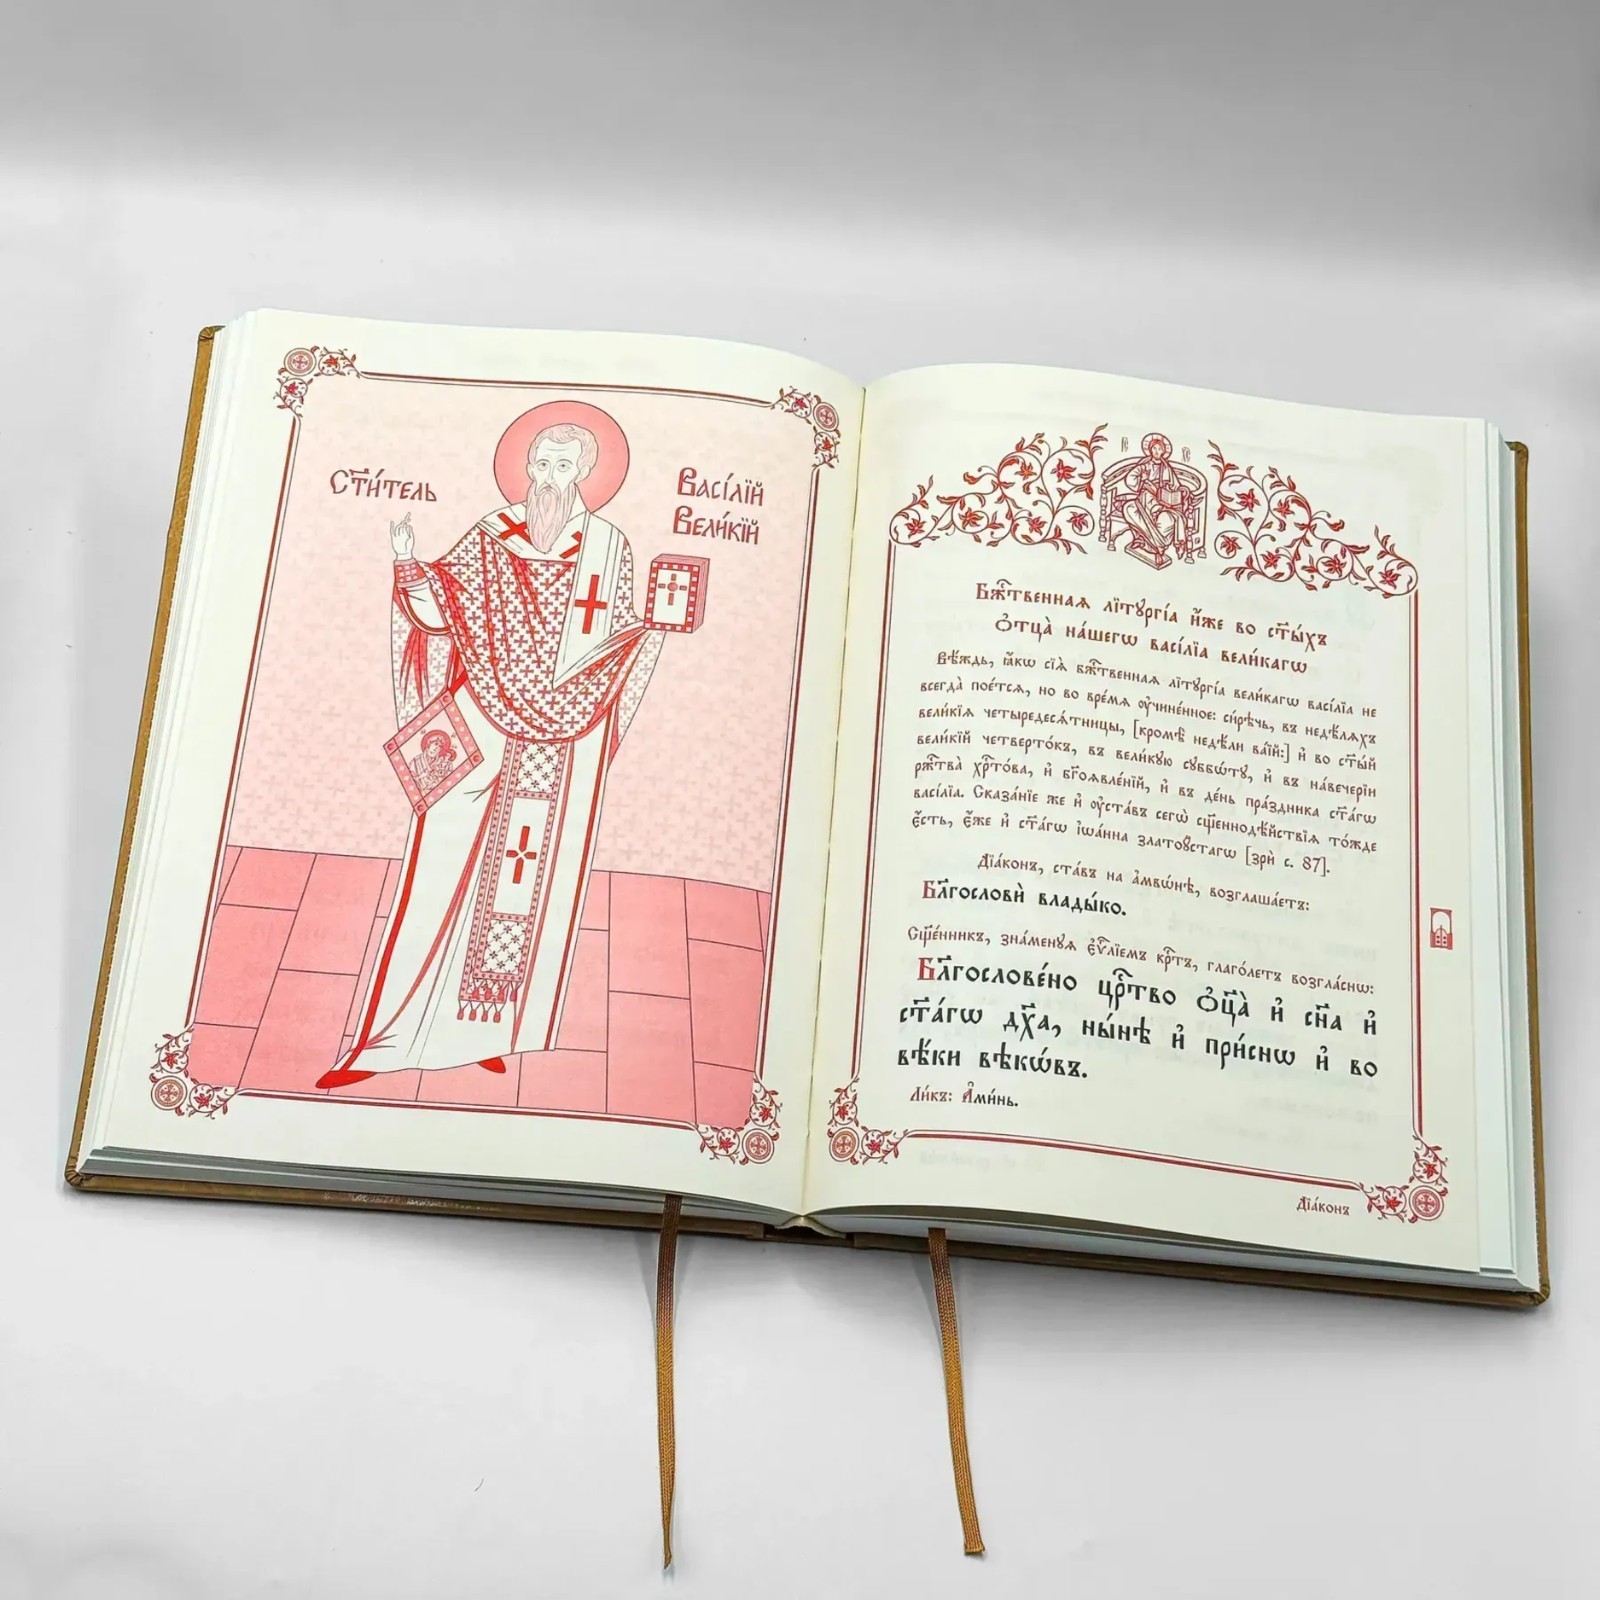 Ст҃и́тель
Васі́лїй
Вели́кїй
Бж҃е́ственнаѧ лїтꙋргі́а и҆́же во ст҃ы́хъ
ѻ҆тца̀ на́шегѡ васі́лїа вели́кагѡ
Вѣ́ждь, ꙗ҆́кѡ сїѧ̀ бж҃е́ственнаѧ лїтꙋргі́а вели́кагѡ васі́лїа не
всегда̀ пое́тсѧ, но во вре́мѧ ᲂу҆чине́нное: си́рѣчь, въ недѣ́лѧхъ
вели́кїѧ четыредесѧ́тницы, [кромѣ̀ недѣ́ли ва́їй:] и҆ во ст҃ы́й
вели́кїй четверто́къ, въ вели́кꙋю сꙋббѡ́тꙋ, и҆ въ наве́черїи
ржⷭ҇тва̀ хрⷭ҇то́ва, и҆ бг҃оѧвле́нїй, и҆ въ де́нь пра́здника ст҃а́гѡ
васі́лїа. Сказа́нїе же и҆ ᲂу҆ста́въ сегѡ̀ сщ҃еннодѣ́йствїѧ то́жде
є҆́сть, є҆́же и҆ ст҃а́гѡ і҆ѡа́нна златоꙋ́стагѡ [зрѝ с. 87].
Дїа́конъ, ста́въ на а҆мвѡ́нѣ, возглаша́етъ:
Бл҃гословѝ влады́ко.
Сщ҃е́нникъ, зна́менꙋѧ є҆ѵⷢ҇лїемъ крⷭ҇тъ, глаго́летъ возгла́снѡ:
Бл҃гослове́но црⷭ҇тво ѻ҆ц҃а̀ и҆ сн҃а и҆
ст҃а́гѡ дх҃а, ны́нѣ и҆ при́снѡ и҆ во
вѣ́ки вѣкѡ́въ.
Ли́къ: А҆ми́нь.
Дїа́конъ